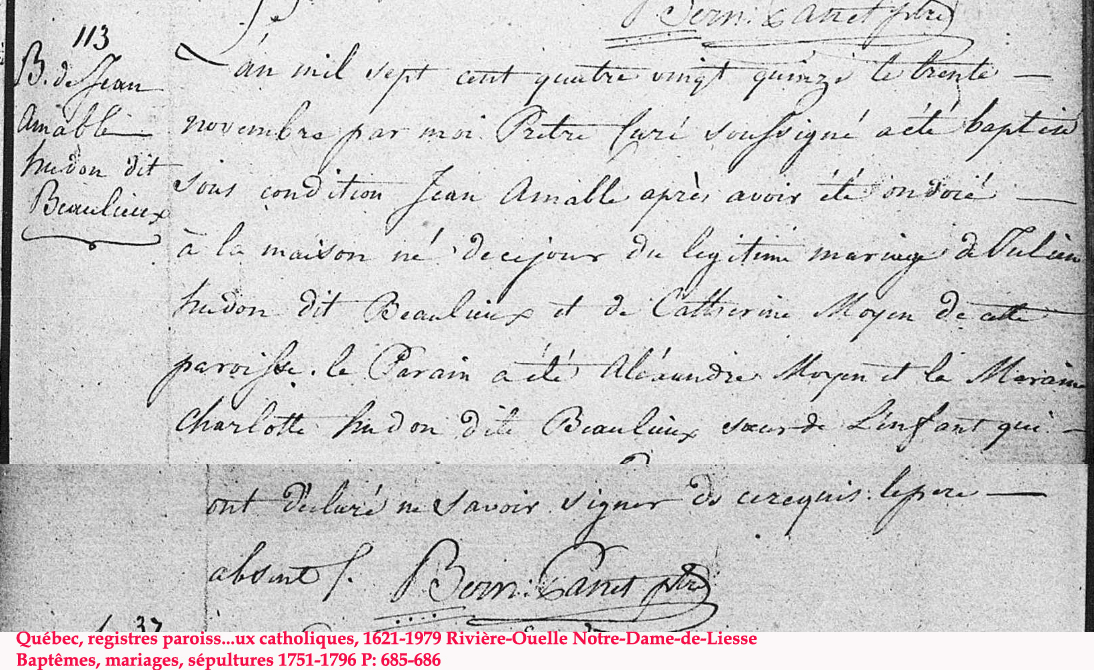 Bern: Panet ptre
113
B. de Jean
Amable
hudon dit
Beaulieux
L'an mil sept cent quatre vingt quinze le trente —
novembre par moi Pretre Curé soussigné a été baptisé
sous condition Jean Amable après avoir été ondoié —
à la maison né de ce jour du legitime mariage de Julien
hudon dit Beaulieux et de Catherine Moyen de cette
paroisse. le Parain a été Aléxandre Moyen et la Maraine
Charlotte hudon dite Beaulieux sœur de L'enfant qui —
ont déclaré ne savoir signer de ce requis. le pere —
absent /.
Bern: Panet ptre
Québec, registres paroiss...ux catholiques, 1621-1979 Rivière-Ouelle Notre-Dame-de-Liesse
Baptêmes, mariages, sépultures 1751-1796 P: 685-686